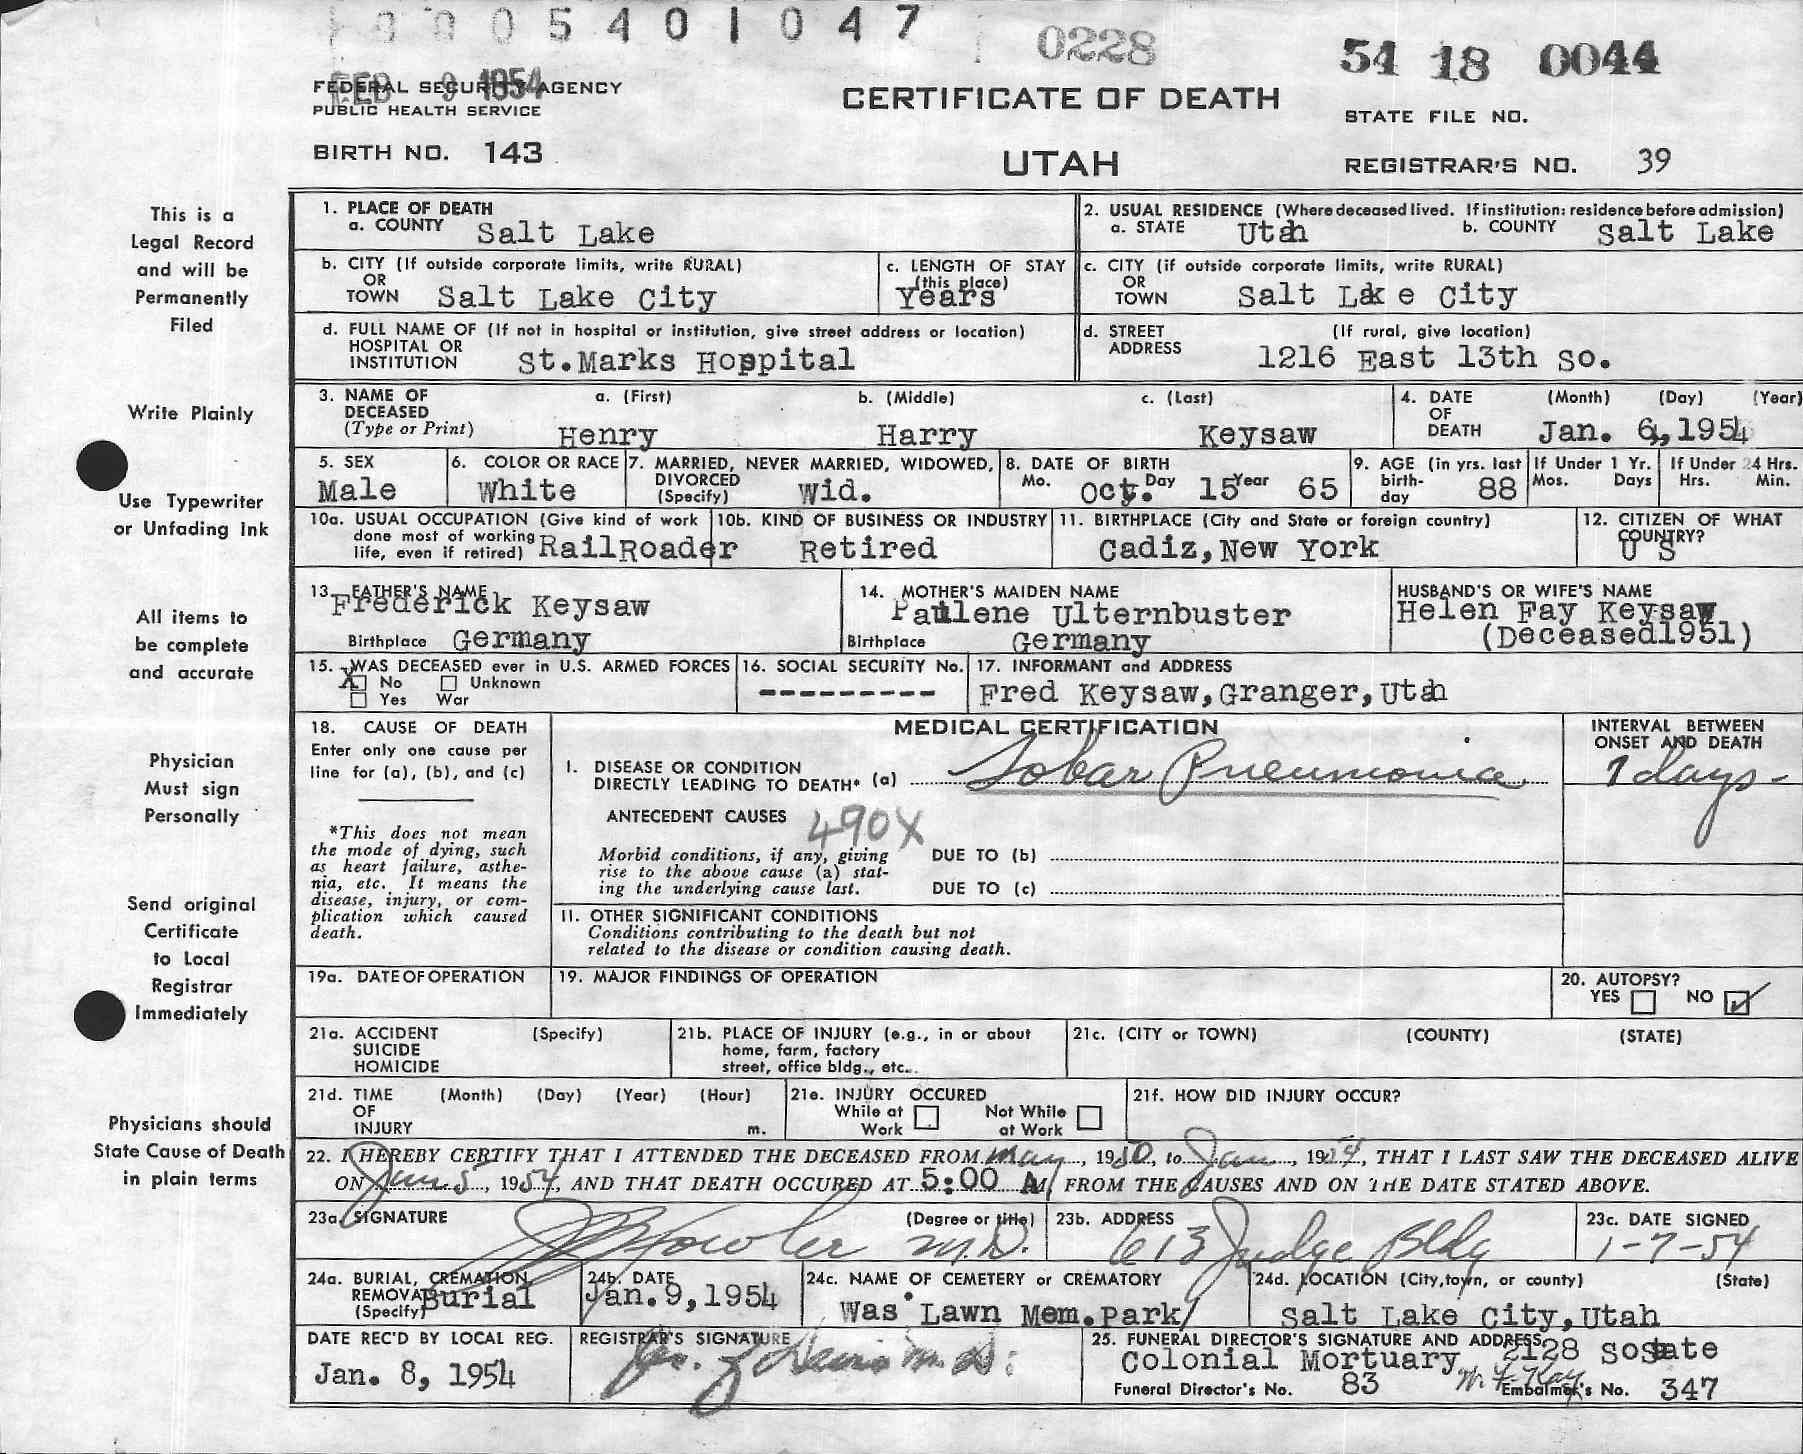 0005401047
0228
54 18 0044
FEB 9 1954
FEDERAL SECURITY AGENCY
PUBLIC HEALTH SERVICE
CERTIFICATE OF DEATH
STATE FILE NO.
BIRTH NO. 143
UTAH
REGISTRAR'S NO. 39
This is a
Legal Record
and will be
Permanently
Filed
Write Plainly
Use Typewriter
or Unfading Ink
All items to
be complete
and accurate
Physician
Must sign
Personally
Send original
Certificate
to Local
Registrar
Immediately
Physicians should
State Cause of Death
in plain terms
1. PLACE OF DEATH
a. COUNTY Salt Lake
2. USUAL RESIDENCE (Where deceased lived. If institution: residence before admission)
a. STATE Utah b. COUNTY Salt Lake
b. CITY (If outside corporate limits, write RURAL)
OR
TOWN Salt Lake City
c. LENGTH OF STAY
(this place)
Years
c. CITY (if outside corporate limits, write RURAL)
OR
TOWN Salt Lake City
d. FULL NAME OF (If not in hospital or institution, give street address or location)
HOSPITAL OR
INSTITUTION St.Marks Hospital
d. STREET (If rural, give location)
ADDRESS 1216 East 13th So.
3. NAME OF a. (First) b. (Middle) c. (Last)
DECEASED
(Type or Print) Henry Harry Keysaw
4. DATE (Month) (Day) (Year)
OF
DEATH Jan. 6,1954
5. SEX
Male
6. COLOR OR RACE
White
7. MARRIED, NEVER MARRIED, WIDOWED,
DIVORCED
(Specify) Wid.
8. DATE OF BIRTH
Mo. Oct. Day 15 Year 65
9. AGE (in yrs. last
birth-
day 88
If Under 1 Yr.
Mos. Days
If Under 24 Hrs.
Hrs. Min.
10a. USUAL OCCUPATION (Give kind of work
done most of working
life, even if retired) RailRoader
10b. KIND OF BUSINESS OR INDUSTRY
Retired
11. BIRTHPLACE (City and State or foreign country)
Cadiz,New York
12. CITIZEN OF WHAT
COUNTRY?
U S
13. FATHER'S NAME
Frederick Keysaw
Birthplace Germany
14. MOTHER'S MAIDEN NAME
Paulene Ulternbuster
Birthplace Germany
HUSBAND'S OR WIFE'S NAME
Helen Fay Keysaw
(Deceased1951)
15. WAS DECEASED ever in U.S. ARMED FORCES
X No Unknown
Yes War
16. SOCIAL SECURITY No.
---------
17. INFORMANT and ADDRESS
Fred Keysaw,Granger,Utah
18. CAUSE OF DEATH
Enter only one cause per
line for (a), (b), and (c)
*This does not mean
the mode of dying, such
as heart failure, asthe-
nia, etc. It means the
disease, injury, or com-
plication which caused
death.
MEDICAL CERTIFICATION
I. DISEASE OR CONDITION
DIRECTLY LEADING TO DEATH* (a) Lobar Pneumonia
ANTECEDENT CAUSES 490X
Morbid conditions, if any, giving
rise to the above cause (a) stat-
ing the underlying cause last.
DUE TO (b)
DUE TO (c)
II. OTHER SIGNIFICANT CONDITIONS
Conditions contributing to the death but not
related to the disease or condition causing death.
INTERVAL BETWEEN
ONSET AND DEATH
7 days -
19a. DATE OF OPERATION
19. MAJOR FINDINGS OF OPERATION
20. AUTOPSY?
YES NO ✓
21a. ACCIDENT (Specify)
SUICIDE
HOMICIDE
21b. PLACE OF INJURY (e.g., in or about
home, farm, factory
street, office bldg., etc..
21c. (CITY or TOWN) (COUNTY) (STATE)
21d. TIME (Month) (Day) (Year) (Hour)
OF
INJURY m.
21e. INJURY OCCURED
While at Work Not While at Work
21f. HOW DID INJURY OCCUR?
22. I HEREBY CERTIFY THAT I ATTENDED THE DECEASED FROM May, 1950, to Jan, 1954, THAT I LAST SAW THE DECEASED ALIVE
ON Jan 5, 1954, AND THAT DEATH OCCURED AT 5:00 A M, FROM THE CAUSES AND ON THE DATE STATED ABOVE.
23a. SIGNATURE (Degree or title)
Fowler M.D.
23b. ADDRESS
613 Judge Bldg
23c. DATE SIGNED
1-7-54
24a. BURIAL, CREMATION,
REMOVAL
(Specify) Burial
24b. DATE
Jan.9,1954
24c. NAME OF CEMETERY or CREMATORY
Was Lawn Mem.Park
24d. LOCATION (City,town, or county) (State)
Salt Lake City,Utah
DATE REC'D BY LOCAL REG.
Jan. 8, 1954
REGISTRAR'S SIGNATURE
M.D.
25. FUNERAL DIRECTOR'S SIGNATURE AND ADDRESS
Colonial Mortuary 2128 SoState
Funeral Director's No. 83 Embalmer's No. 347